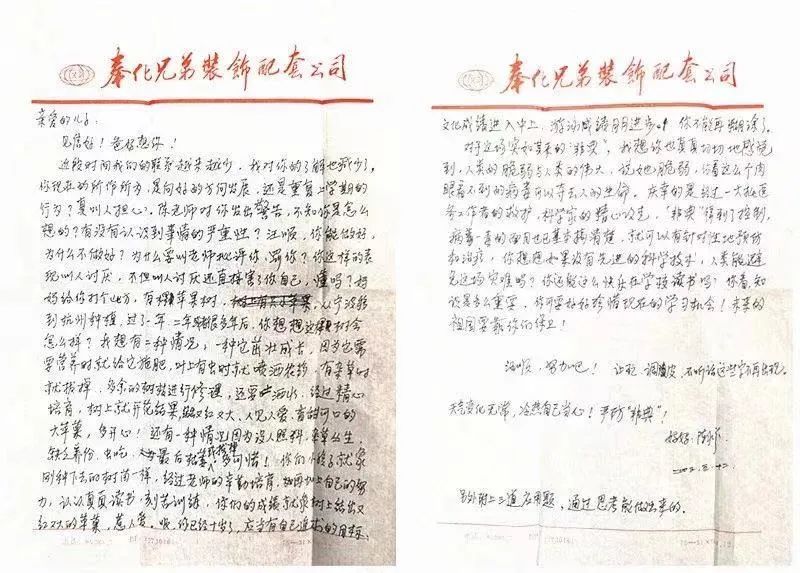 奉化兄弟装飾配套公司
亲爱的儿子:
见信好!爸好想你!
近段时间我们的联系越来越少,我对你的了解也减少了,
你现在的所作所为,是向好的方向发展,还是重复上学期的
行为?真叫人担心。陈老师对你发出警告,不知你是怎么
想的?有没有认识到事情的严重性?汪顺,你能做好,
为什么不做好?为什么要叫老师批评你、骂你?你这样的表
现叫人讨厌,不但叫人讨厌还直接害了你自己,懂吗?妈
妈给你打个比方,有棵苹果树,从宁波移
到杭州种植,过了一年、二年很多年后,你想想这棵树会
怎么样?我想有二种情况,一种它茁壮成长,因为它需
要营养时就给它施肥,叶上有虫时就喷洒农药,有杂草时
就拔掉,多余的树枝进行修理,还要洒水,经过精心
培育,树上就开花结果,又红又大、人见人爱,有甜可口的
大苹果,多开心!还有一种情况因为没人照料,杂草丛生、
缺乏养份、虫吃,最后枯萎或拔掉多可惜!你们小孩子就象
刚种下去的树苗一样,经过老师的辛勤培育,加上自己的努
力,认认真真读书,刻苦训练,你们的成绩就象树上结出又
红又大的苹果,惹人爱。顺,你已经十岁了,应当有自己追求的目标:
奉化兄弟装飾配套公司
文化成绩进入中上,游泳成绩月月进步。你不能再糊涂了。
对于这场突如其来的“非典”,我想你也真真切切地感觉
到,人类的脆弱与人类的伟大,说她脆弱,你看这么个肉
眼看不到的病毒可以夺去人的生命。庆幸的是经过一大批医
务工作者的救护,科学家的精心攻克,“非典”得到了控制,
病毒的面目也已基本搞清楚,就可以有针对性地预防
和治疗,你想想如果没有先进的科学技术,人类能逃避
是这场灾难吗?你还能这么快乐在学校读书吗?你看,知
识是多么重要,你可要好好珍惜现在的学习机会!未来的
祖国要靠你们保卫!
汪顺,努力吧!让玩、调皮、不听话这些字不再出现。
天气变化无常,冷热自己当心!严防“非典”!
妈妈:
另外附上三道应用题,通过思考能做出来的。